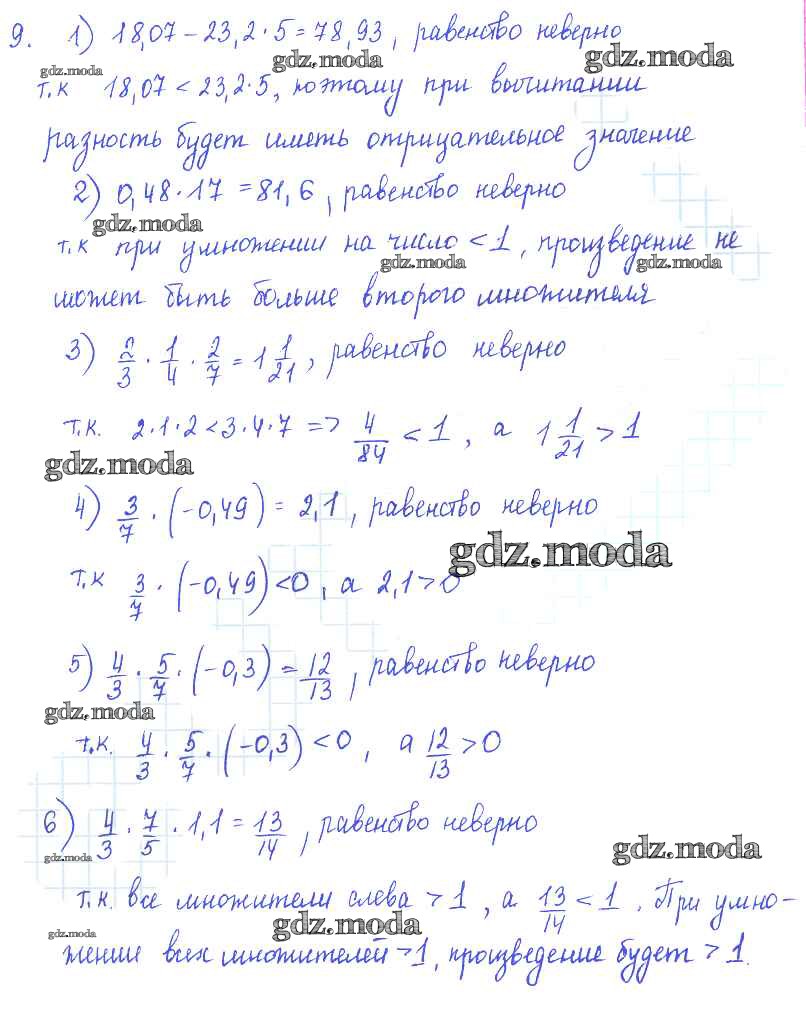 9. 1) 18,07 - 23,2 · 5 = 78,93, равенство неверно
gdz.moda gdz.moda gdz.moda
т.к 18,07 < 23,2 · 5, поэтому при вычитании
разность будет иметь отрицательное значение
2) 0,48 · 17 = 81,6, равенство неверно
gdz.moda
т.к при умножении на число < 1, произведение не
gdz.moda gdz.moda
может быть больше второго множителя
3) 2/3 · 1/4 · 2/7 = 1 1/21, равенство неверно
т.к. 2·1·2 < 3·4·7 => 4/84 < 1, а 1 1/21 > 1
gdz.moda
4) 3/7 · (-0,49) = 2,1, равенство неверно
gdz.moda
т.к 3/7 · (-0,49) < 0, а 2,1 > 0
5) 4/3 · 5/7 · (-0,3) = 12/13, равенство неверно
gdz.moda
т.к. 4/3 · 5/7 · (-0,3) < 0, а 12/13 > 0
6) 4/3 · 7/5 · 1,1 = 13/14, равенство неверно
gdz.moda gdz.moda
т.к. все множители слева > 1, а 13/14 < 1. При умно-
gdz.moda gdz.moda
жении всех множителей > 1, произведение будет > 1.